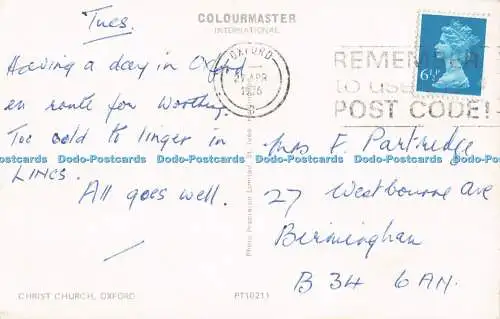 Tues.
COLOURMASTER
INTERNATIONAL
OXFORD
APR
1976
REMEMBER
to use
POST CODE!
6½P
Having a day in Oxford
en route for Worthing.
Too cold to linger in
LINCS.
All goes well.
Mrs F. Partridge
27 Westbourne Ave
Birmingham
B34 6AN.
Dodo-Postcards Dodo-Postcards Dodo-Postcards Dodo-Postcards Dodo-Postcards Dodo-Postcards
Photo Precision Limited, St. Ives
CHRIST CHURCH, OXFORD
PT10211